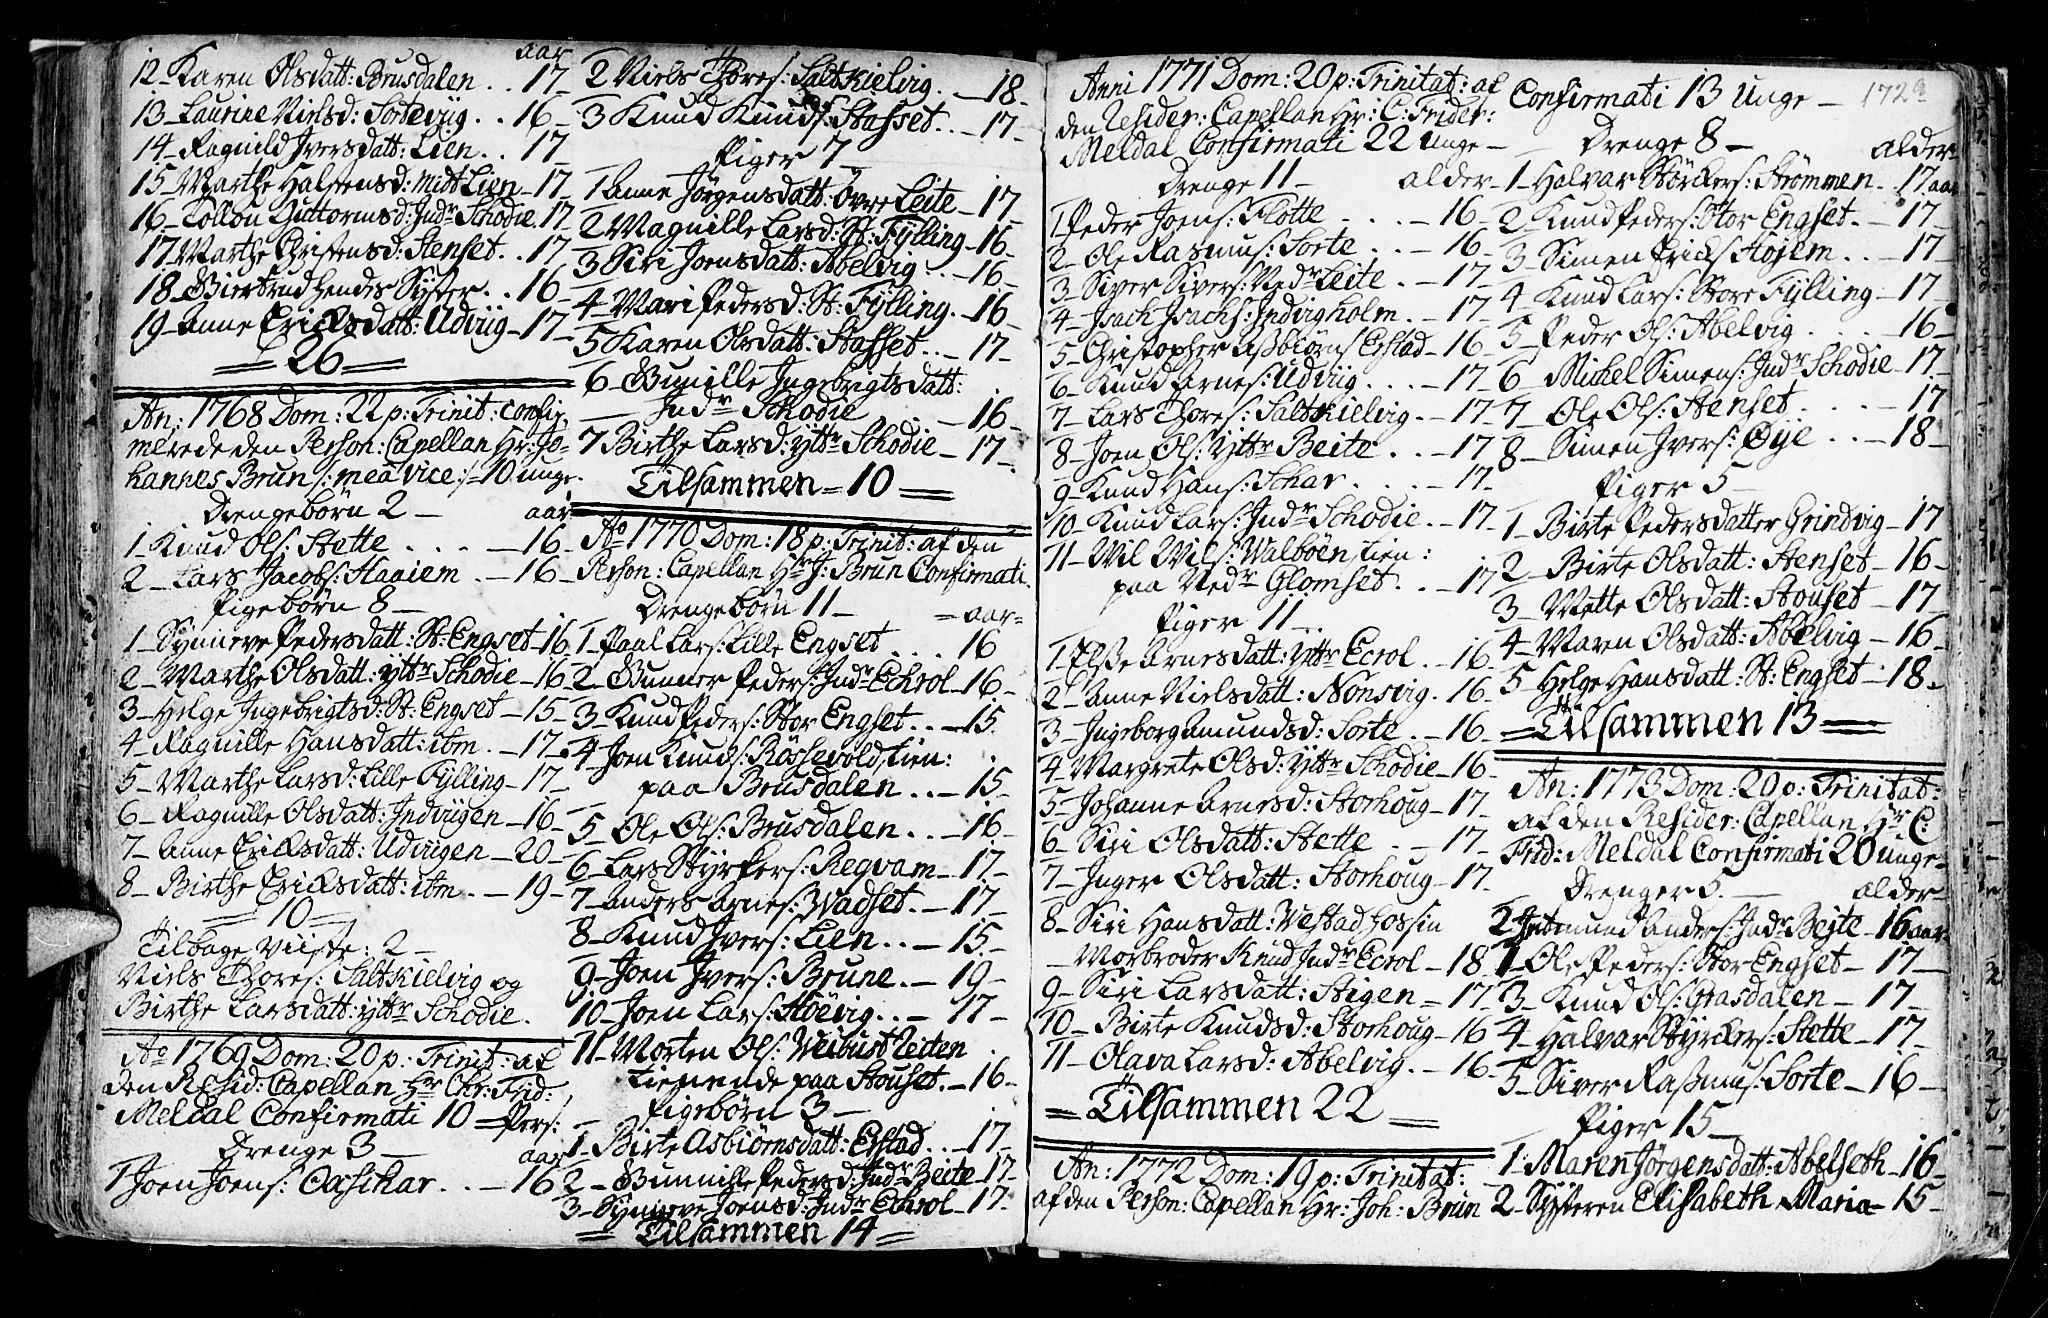 aar
12 - Karen Olsdatt: Brusdalen . . 17 -
13 - Laurine Nielsd: Sorteviig . . 16 -
14 - Ragnild Iversdatt: Lien . . 17
15 - Marthe Halstensd: Midt Lien - 17 -
16 - Guttormsd: Indr Schodie 17 -
17 - Marthe Christensd: Stenset . . 17
18 - Giertrud hendes Syster . . 16 -
19 - Anne Ericksdatt: Udviig - 17 -
= 26 =
An: 1768 Dom: 22 p: Trinit: confir,
merede den Person: Capellan Hr: Jo-
hannes Brun /: mea vice :/ 10 unge.
Drengebörn 2 - aar
1 - Knud Ols: Stette . . . . - 16 -
2 - Lars Jacobs: Haaiem . - 16 -
Pigebörn 8 -
1 - Synneve Pedersdatt: St: Engset - 16
2 - Marthe Olsdatt: Yttr Schodie - 16 -
3 - Helge Ingebrigtsd: St: Engset - 15 -
4 - Ragnille Hansdatt: ibm . - 17 -
5 - Marthe Larsd: Lille Fylling - 17 -
6 - Ragnille Olsdatt: Indviigen - 16 -
7 - Anne Ericksdatt: Udviigen - 20 -
8 - Birthe Ericksdatt: ibm . - 19 -
= 10 =
Tilbage viiste: 2 -
Niels Thores: Saltkielvig og
Birthe Larsdatt: yttr Schodie.
Ao 1769 Dom: 20 p: Trinit: af
den Resid: Capellan Hr Chr: Frid:
Meldal Confirmati 10 = Pers:
Drenge 3 - aar
1 Joen Joens: Oasehar . . - 16
2 Niels Thores: Saltkielvig . - 18 -
3 Knud Knuds: Stafset . . - 17 -
Piger 7 -
1 Anne Jörgensdatt: Övre Leite - 17 -
2 Magnille Larsd: St: Fylling - 16 -
3 Siri Joensdatt: Abelvig . - 16 -
4 - Mari Pedersd: St: Fylling . 16 -
5 Karen Olsdatt: Stafset . . - 17 -
6 - Gunille Ingebrigtsdatt:
Indr Schodie - 16 -
7 Birthe Larsd: yttr Schodie - 17 -
Tilsammen = 10 =
Ao 1770 Dom: 18 p: Trinit: af den
Person: Capellan Hr J: Brun Confirmati
Drengebörn 11 - = aar =
1 - Paal Lars: Lille Engset . . . 16
2 - Gunner Peders: Indr Echrol - 16 -
3 - Knud Peders: Stor Engset . . - 15
4 Joen Knuds: Rossevold, tien:
paa Brusdalen . . - 15 -
5 - Ole Ols: Brusdalen . . - 16 -
6 - Lars Styrkers: Regvam - 17 -
7 - Anders Arnes: Wadset . - 17 -
8 - Knud Ivers: Lien . . - 15 -
9 - Joen Ivers: Brune . - 19 -
10 - Joen Lars: Höevig . . - 17 -
11 - Morten Ols: Veibust Leiten
tienende paa Stouset . - 16 -
Pigebörn 3 -
1 - Birte Asbiörnsdatt: Erstad . . - 17 -
2 - Gunnille Pedersd: Indr Beite - 17 -
3 - Synneve Joensd: Indr Echrol - 17 -
= Tilsammen 14 =
Anni 1771 Dom: 20 p: Trinitat: af
den Resider: Capellan Hr: C: Frider:
Meldal Confirmati 22 unge -
Drenge 11 - alder -
1 Peder Joens: Flotte . . . - 16 -
2 - Ole Rasmus: Sorte . . - 16 -
3 - Siver Sivers: Nedr Leite . - 17 -
4 - Isach Isachs: Indvigholm . - 17 -
5 - Christopher Assbiörns Erstad - 16 -
6 - Knud Arnes: Udviig . . . - 17 -
7 - Lars Thores: Saltkielvig . - 17 -
8 - Joen Ols: Yttr Beite . . - 17
9 - Knud Hans: Schar . . . - 17 -
10 - Knud Lars: Indr Schodie . - 17 -
11 - Nil Nils: Walböen, tien:
paa Nedr Glomset . . - 17
Piger 11 -
1 Else Arnesdatt: Yttr Ecrol . - 16 -
2 - Anne Nielsdatt: Nonsvig . 16 -
3 - Ingeborg Amundsd: Sorte . - 16 -
4 - Margrete Olsd: Yttr Schodie - 16 -
5 - Johanne Arnesd: Storhoug - 17 -
6 - Siri Olsdatt: Stette . - 17 -
7 - Inger Olsdatt: Storhoug - 17 -
8 - Siri Hansdatt: Vestad hos sin
Morbroder Knud Indr Ecrol - 18
9 - Siri Larsdatt: Stigen = 17 -
10 - Birte Knudsd: Storhoug - 16
11 - Olava Larsd: Abelvig . - 16 -
= Tilsammen 22 =
An: 1772 Dom: 19 p: Trinitat:
af den Person: Capellan Hr: Joh: Brun
Confirmati 13 Unge - 172a
Drenge 8 - alder -
1 - Halvar Störckers: Strömmen - 17 aar
2 - Knud Peders: Stor Engset . - 17 -
3 - Simen Ericks Höjem . . - 17 -
4 - Knud Lars: Store Fylling - 17 -
5 - Peder Ols: Abelvig . . . - 16 -
6 - Michel Simens: Indr Schodie - 17 -
7 - Ole Ols: Stenset . . . - 17
8 - Simen Ivers: Øye . . - 18 -
Piger 5 -
1 - Birte Pedersdatter Grindvig - 17
2 - Birte Olsdatt: Stenset - 16 -
3 - Mette Olsdatt: Stouset - 17 -
4 - Maren Olsdatt: Abelvig - 16 -
5 Helge Hansdatt: St: Engset - 18 -
= Tilsammen 13 =
An: 1773 Dom: 20 p: Trinitat:
af den Resider: Capellan Hr C:
Frid: Meldal Confirmati 20 unge -
Drenger 5. - alder -
2 Anders: Indr Bejte - 16 aar
1 - Ole Peders: Stor Engset - 17 -
3 - Knud Ols: Grasdalen - 17 -
4 - Halvar Styrckers: Stette - 17 -
5 - Siver Rassmus: Sorte - 16 -
Piger 15 -
1 - Maren Jörgensdatt: Abelseth - 16 -
2 - Systeren Elisabeth Maria - 15 -